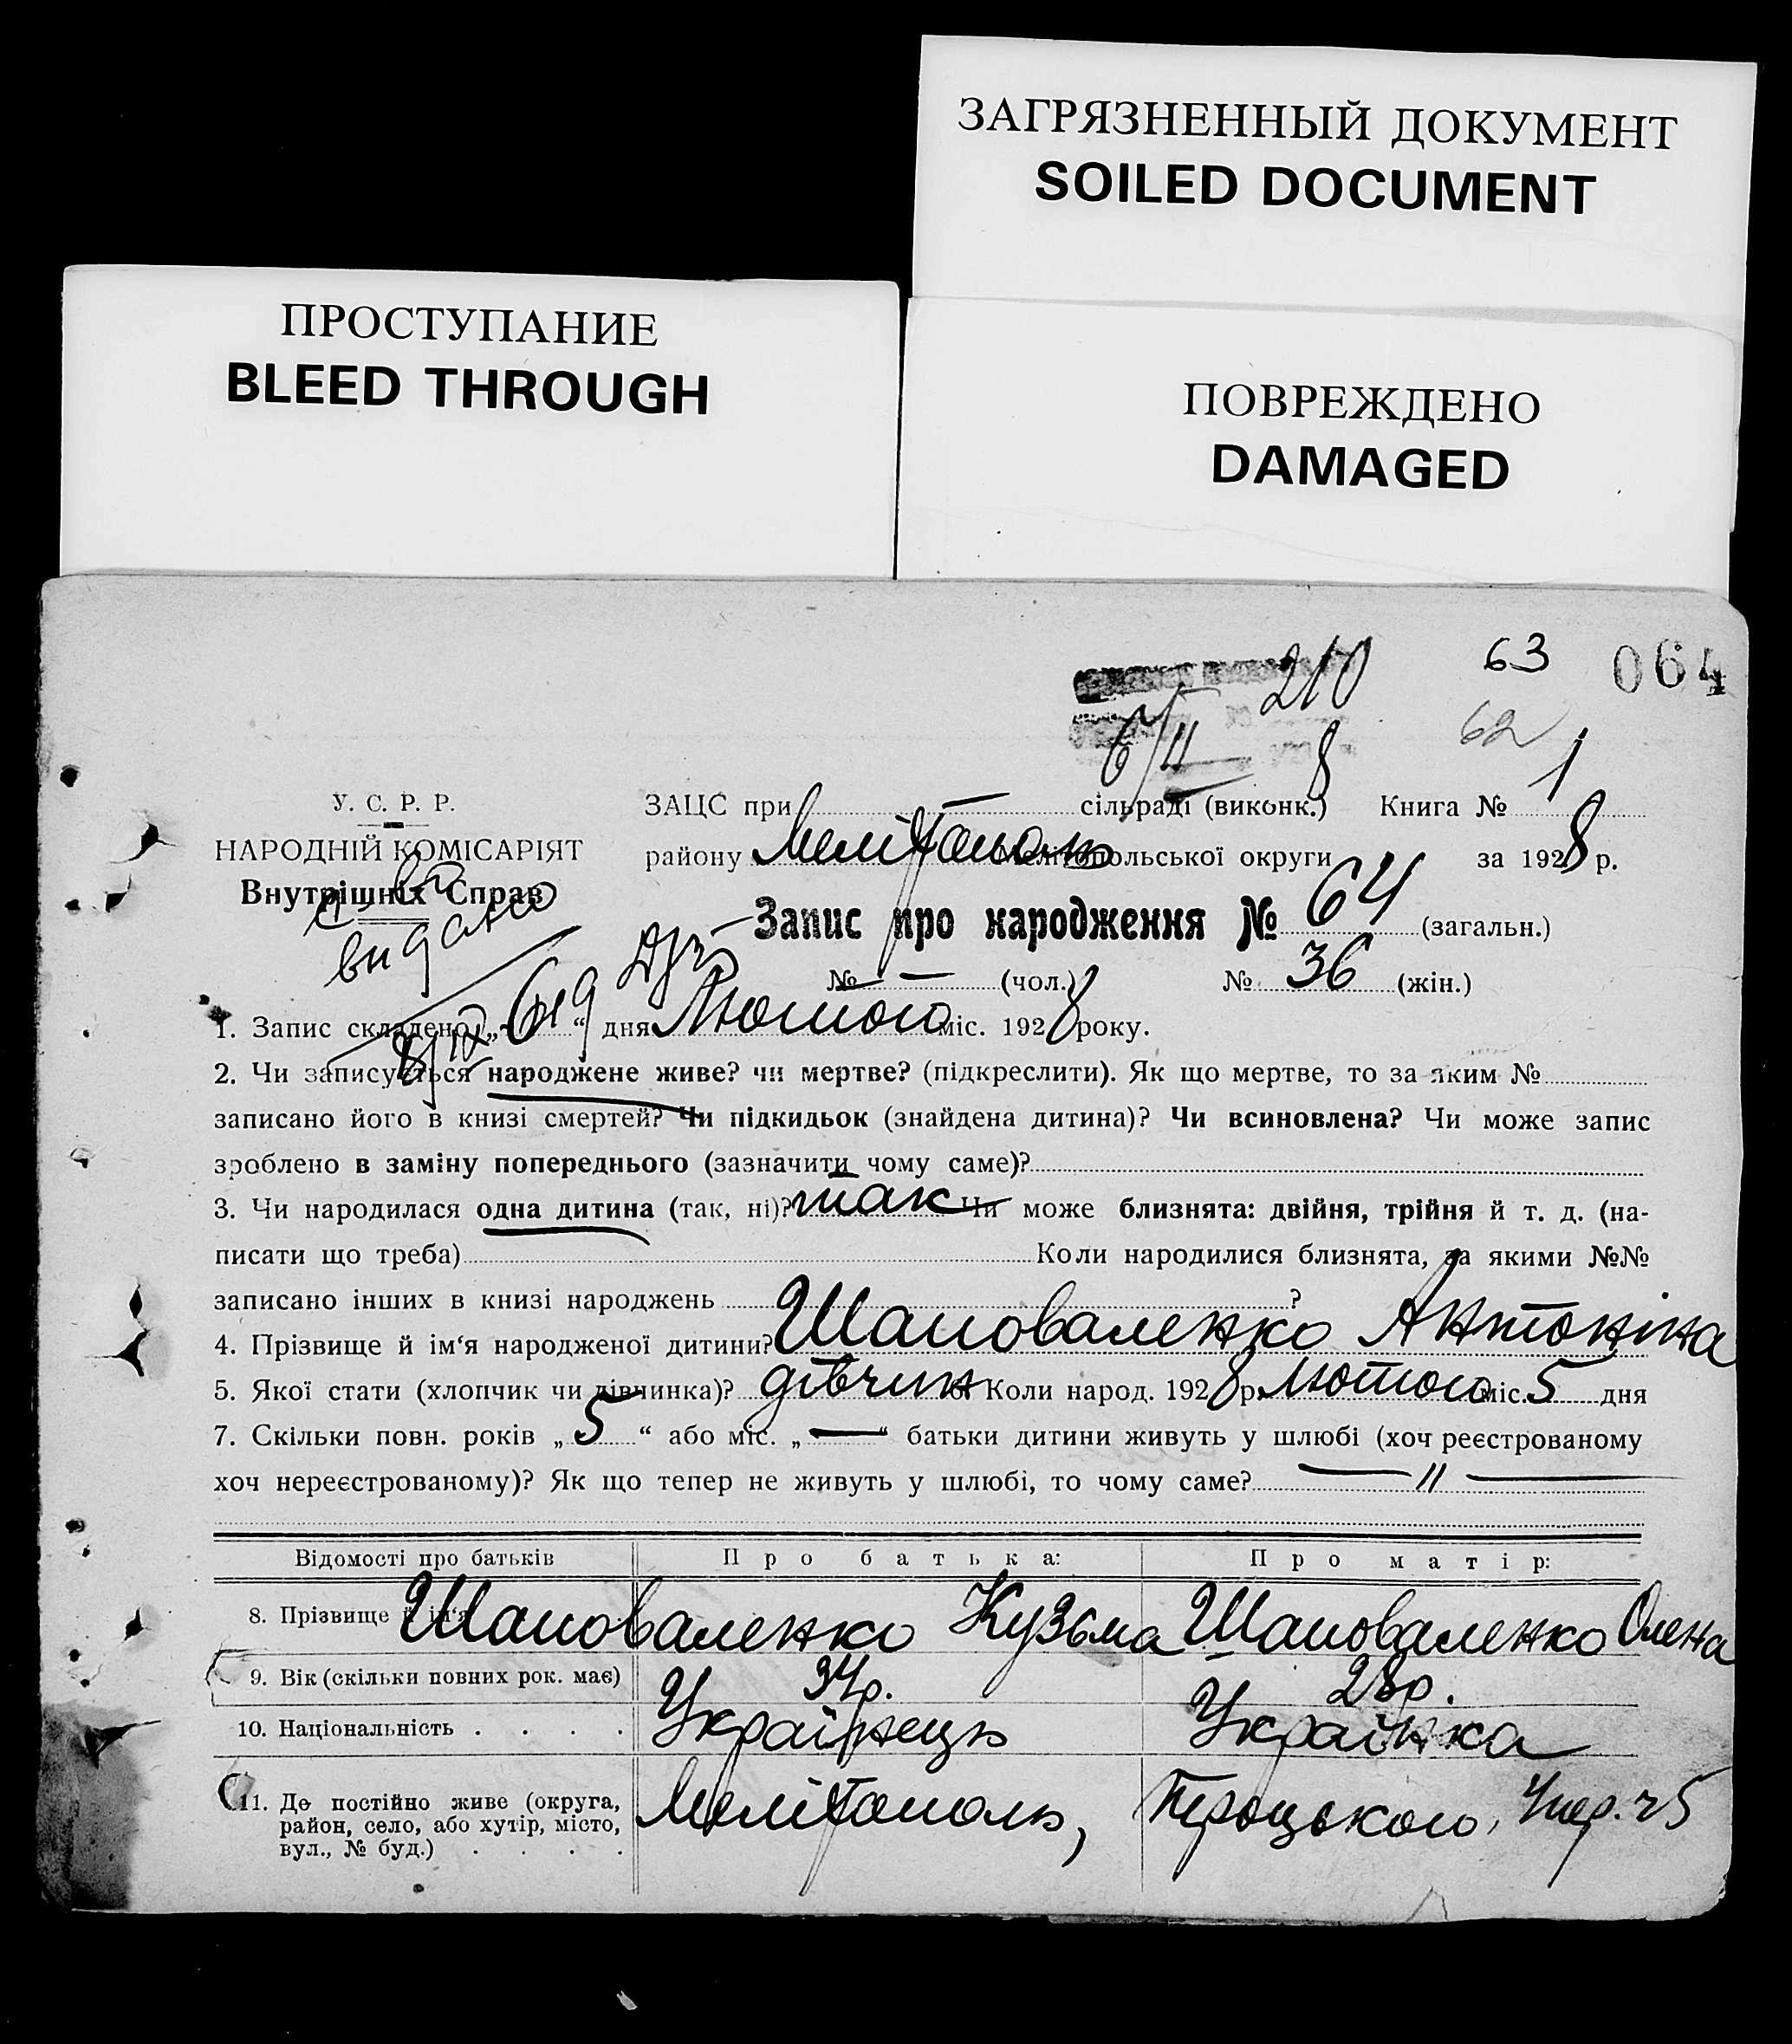 ЗАГРЯЗНЕННЫЙ ДОКУМЕНТ
SOILED DOCUMENT
ПРОСТУПАНИЕ
BLEED THROUGH
ПОВРЕЖДЕНО
DAMAGED
210 63 064
6/II 8 62
У. С. Р. Р.
НАРОДНІЙ КОМІСАРІЯТ
Внутрішніх Справ
видано
ЗАЦС при — сільраді (виконк.) Книга № 1
району Мелітополь Мелітопольської округи за 1928 р.
Запис про народження № 64 (загальн.)
№ — (чол.) № 36 (жін.)
1. Запис складено „6“ дня Лютого міс. 1928 року.
2. Чи записується народжене живе? чи мертве? (підкреслити). Як що мертве, то за яким №
записано його в книзі смертей? Чи підкидьок (знайдена дитина)? Чи всиновлена? Чи може запис
зроблено в заміну попереднього (зазначити чому саме)?
3. Чи народилася одна дитина (так, ні)? так Чи може близнята: двійня, трійня й т. д. (на-
писати що треба) Коли народилися близнята, за якими №№
записано інших в книзі народжень ?
4. Прізвище й ім‘я народженої дитини? Шаповаленко Антоніна
5. Якої стати (хлопчик чи дівчинка)? дівчин 6. Коли народ. 1928 р. Лютого міс. 5 дня
7. Скільки повн. років „5“ або міс. „—“ батьки дитини живуть у шлюбі (хоч реєстрованому
хоч нереєстрованому)? Як що тепер не живуть у шлюбі, то чому саме? — // —
Відомості про батьків Про батька: Про матір:
8. Прізвище й ім‘я Шаповаленко Кузьма Шаповаленко Олена
9. Вік (скільки повних рок. має) 34р. 28р.
10. Національність . . . . Українець Українка
11. Де постійно живе (округа,
район, село, або хутір, місто,
вул., № буд.) . . . . Мелітополь, Троцького,